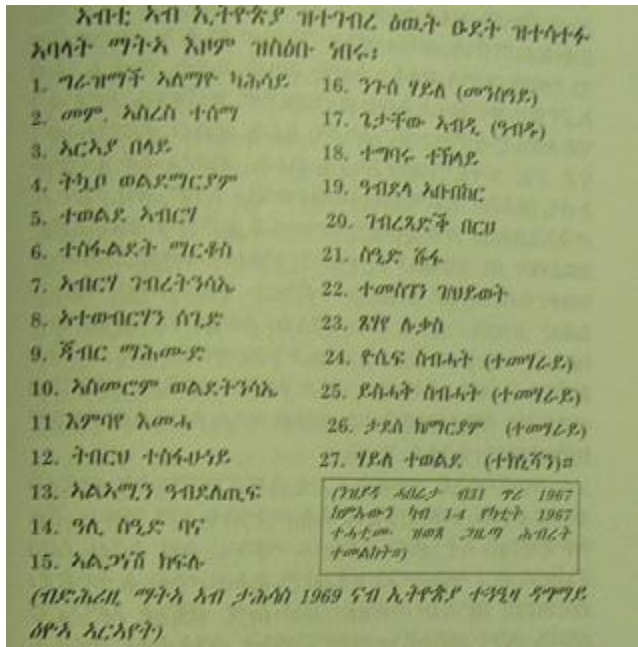 ኣብቲ ኣብ ኢትዮጵያ ዝተገብረ ዕዉት ዑደት ዝተሳተፉ
ኣባላት ማትኣ እዞም ዝስዕቡ ነበሩ፡
1. ግራዝማች ኣለማዮ ካሕሳይ
2. መም. ኣስረስ ተሰማ
3. ኣርኣያ በላይ
4. ትኳቦ ወልደማርያም
5. ተወልደ ኣብርሃ
6. ተስፋልደት ማርቆስ
7. ኣብርሃ ገብረትንሳኤ
8. ኣተወብርሃን ሰጊድ
9. ጃብር ማሕሙድ
10. ኣስመሮም ወልደትንሳኤ
11 እምባየ እመሓ
12. ትበርህ ተስፋሁነይ
13. ኣልኣሚን ዓብደለጢፍ
14. ዓሊ ስዒድ ባና
15. ኣልጋነሽ ክፍሉ
16. ንጉሰ ሃይለ (መንሰዓይ)
17. ጌታቸው ኣብዲ (ዓብዱ)
18. ተግባሩ ተኽላይ
19. ዓብደላ ኣቡበከር
20. ገብረጻድቕ በርሀ
21. ስዒድ ሹፋ
22. ተመስገን ገ/ህይወት
23. ጸሃየ ሉቃስ
24. ዮሴፍ ስብሓት (ተመሃራይ)
25. ይስሓት ስብሓት (ተመሃራይ)
26. ታደሰ ክማርያም (ተመሃራይ)
27. ሃይለ ተወልደ (ተክኒሻን)።
(ንዝያዳ ሓበሬታ ብ31 ጥሪ 1967
ከምኡውን ካብ 1-4 የካቲት 1967
ተሓቲሙ ዝወጸ ጋዜጣ ሕብረት
ተመልከት።)
(ብድሕሪዚ ማትኣ ኣብ ታሕሳስ 1969 ናብ ኢትዮጵያ ተጓዒዛ ዳግማይ
ዕዮኣ ኣርኣየት)